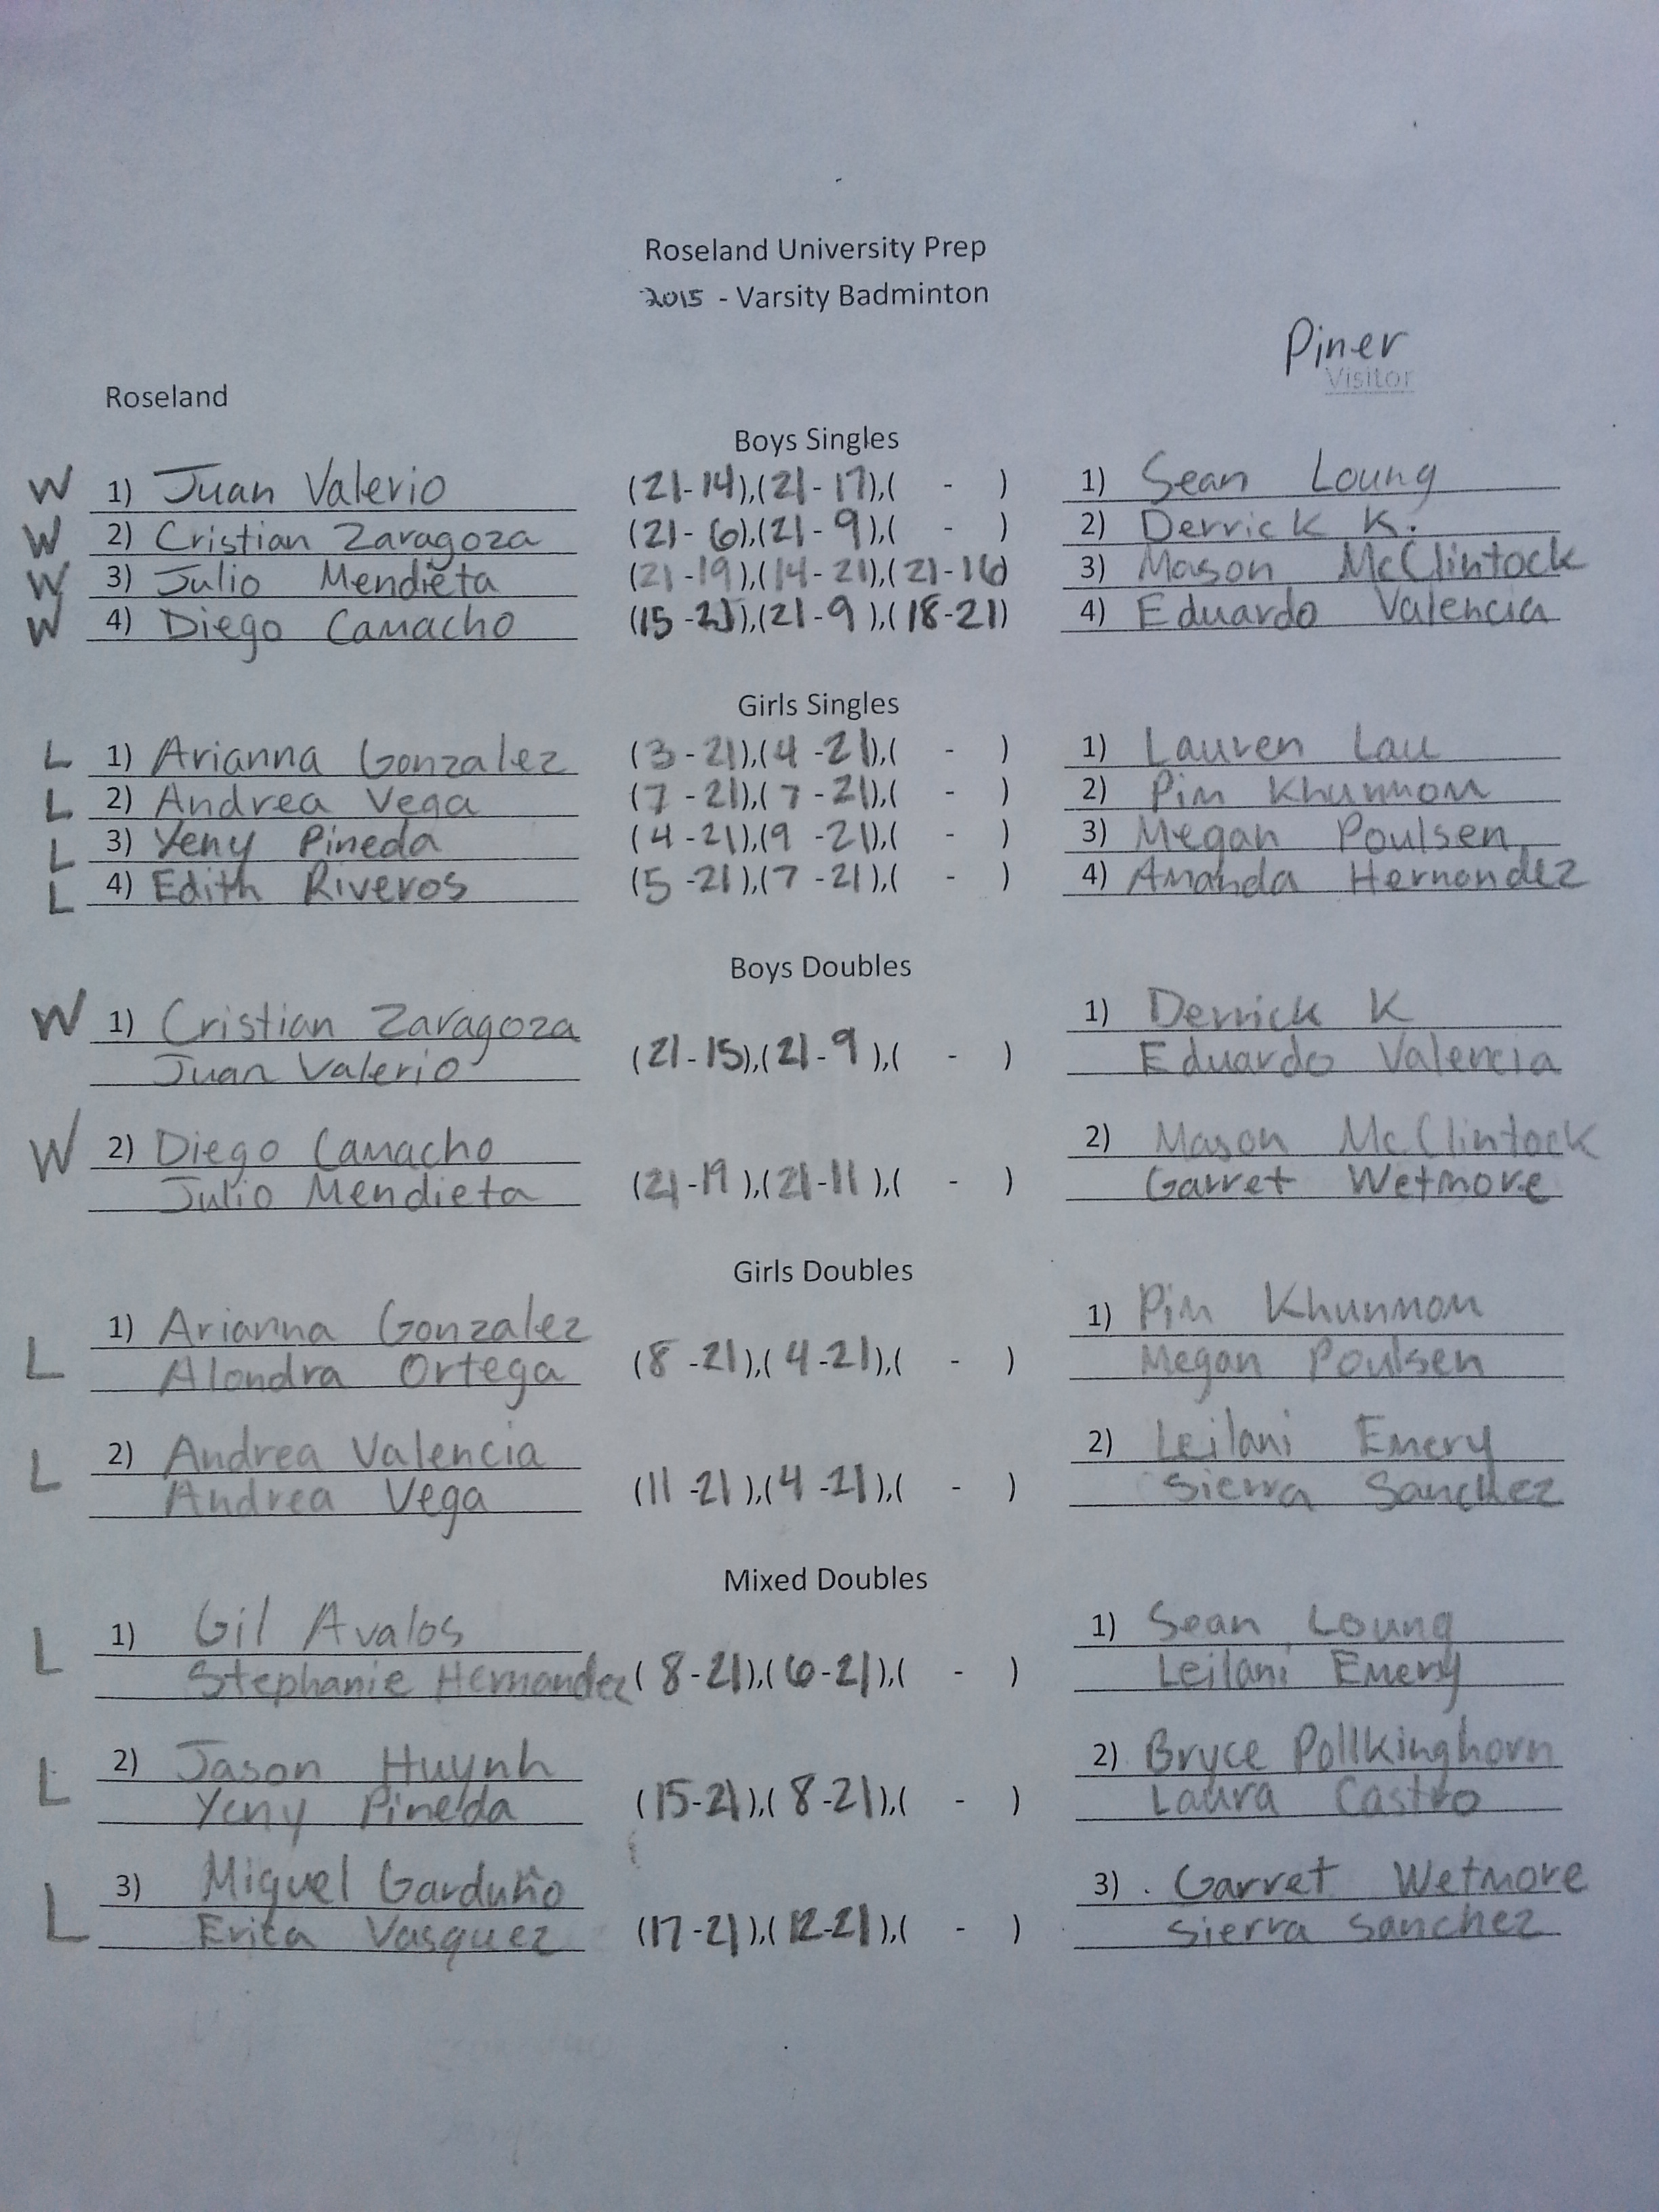 Roseland University Prep
2015 - Varsity Badminton
Piner
Visitor
Roseland
Boys Singles
W 1) Juan Valerio (21-14),(21-17),( - ) 1) Sean Loung
W 2) Cristian Zaragoza (21-6),(21-9),( - ) 2) Derrick K.
W 3) Julio Mendieta (21-19),(14-21),(21-16) 3) Mason McClintock
W 4) Diego Camacho (15-21),(21-9),(18-21) 4) Eduardo Valencia
Girls Singles
L 1) Arianna Gonzalez (3-21),(4-21),( - ) 1) Lauren Lau
L 2) Andrea Vega (7-21),(7-21),( - ) 2) Pim Khunmom
L 3) Yeny Pineda (4-21),(9-21),( - ) 3) Megan Poulsen
L 4) Edith Riveros (5-21),(7-21),( - ) 4) Amanda Hernandez
Boys Doubles
W 1) Cristian Zaragoza 1) Derrick K
Juan Valerio (21-15),(21-9),( - ) Eduardo Valencia
W 2) Diego Camacho 2) Mason McClintock
Julio Mendieta (21-19),(21-11),( - ) Garret Wetmore
Girls Doubles
1) Arianna Gonzalez 1) Pim Khunmom
L Alondra Ortega (8-21),(4-21),( - ) Megan Poulsen
L 2) Andrea Valencia 2) Leilani Emery
Andrea Vega (11-21),(4-21),( - ) Sierra Sanchez
Mixed Doubles
L 1) Gil Avalos 1) Sean Loung
Stephanie Hernandez (8-21),(6-21),( - ) Leilani Emery
L 2) Jason Huynh 2) Bryce Pollkinghorn
Yeny Pineda (15-21),(8-21),( - ) Laura Castro
L 3) Miguel Garduño 3) Garret Wetmore
Erica Vasquez (17-21),(12-21),( - ) Sierra Sanchez